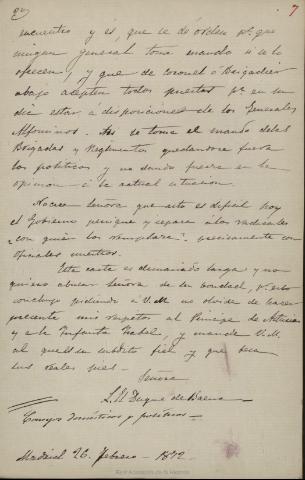 2º 7
encuentro y és, que se dé órden pª que
ningun General tome mando si se lo
ofrecen, y que de Coronel ó Brigadier
abajo acepten todos puestos pª en su
dia estar á disposiciones de los Generales
Alfonsinos. Asi se toma el mando delas
Brigadas y Regimentos quedandose fuera
los politicos y no dando fuerza en la
opinion á la actual situacion.
No crea Señora que esto es dificil hoy
el Gobierno persigue y separa á los radicales
con quien los remplazara? precisamente con
oficiales nuestros.
Esta carta es demasiado larga y no
quiero abusar Señora de su bondad, pr esto
concluyo pidiendo á V.M. no olvide de hacer
presente mis respetos al Principe de Asturias
y a la Infanta Isabel y mande V.M.
al que es su subdito fiel y que besa
sus reales pies.
Señora
El Duque de Baena
Consejos domésticos y politicos
Madrid 26 Febrero 1872